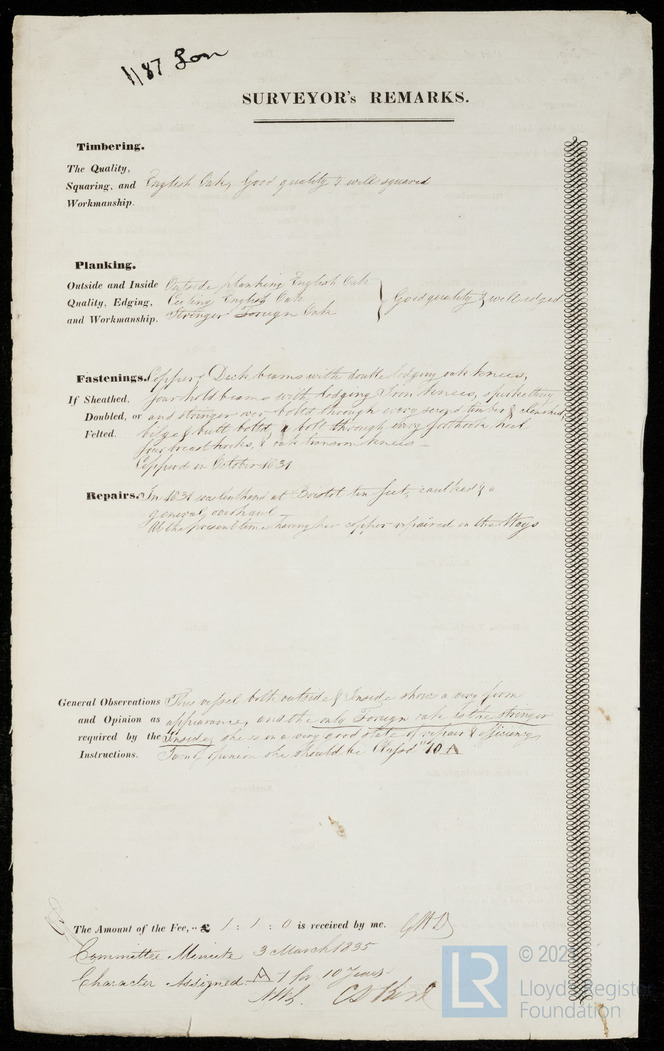 1187 Lon
SURVEYOR's REMARKS.
Timbering.
The Quality,
Squaring, and English Oak, Good quality & well squared
Workmanship.
Planking.
Outside and Inside Outside planking English Oak
Quality, Edging, Ceiling English Oak } Good quality & well edged
and Workmanship. Stringer Foreign Oak
Fastenings. Copper; Deck beams with double lodging oak knees,
If Sheathed, four hold beams with lodging Iron knees, spirketting
Doubled, or and stringer over bolted through every second timber & clenched,
Felted. bilge & butt bolts, a bolt through every foothook heel
four breasthooks, & oak transom knees
Coppered in October 1831
Repairs. In 1831 was lengthened at Bristol ten feet, caulked & a
general overhaul
At the present time having her copper repaired on the Ways
General Observations This vessel both outside & Inside shows a very firm
and Opinion as appearance, and the only Foreign oak is the stringer
required by the Inside, she is in a very good state of repair & efficiency
Instructions. opinion she should be Class'd "10 A
The Amount of the Fee, .. £ 1 : 1 : 0 is received by me. GHD
Committee Minute 3 March 1835
Character Assigned A 1 for 10 Years
LR
Lloyd's Register
Foundation